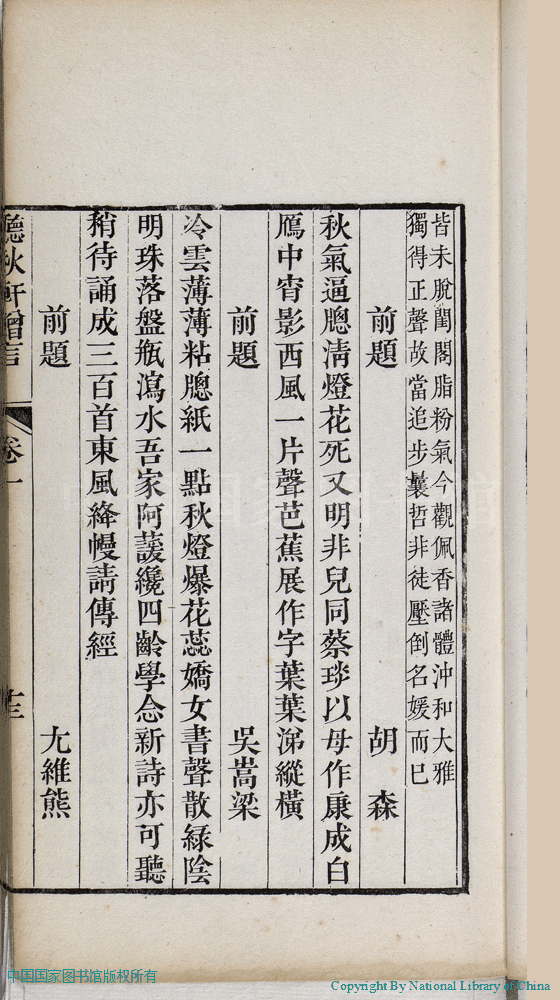 皆未脫閨閣脂粉氣今觀佩香諸體沖和大雅
獨得正聲故當追步曩哲非徒壓倒名媛而已
前題 胡 森
秋氣逼牕淸燈花死又明非兒同蔡琰以母作康成白
鴈中宵影西風一片聲芭蕉展作字葉葉涕縱橫
前題 吳嵩梁
冷雲薄薄粘牕紙一點秋燈爆花蕊嬌女書聲散綠陰
明珠落盤瓶瀉水吾家阿蘐纔四齡學念新詩亦可聽
稍待誦成三百首東風絳幔請傳經
前題 尤維熊
聽秋軒贈言 卷一 十三
中国国家图书馆版权所有
Copyright By National Library of China